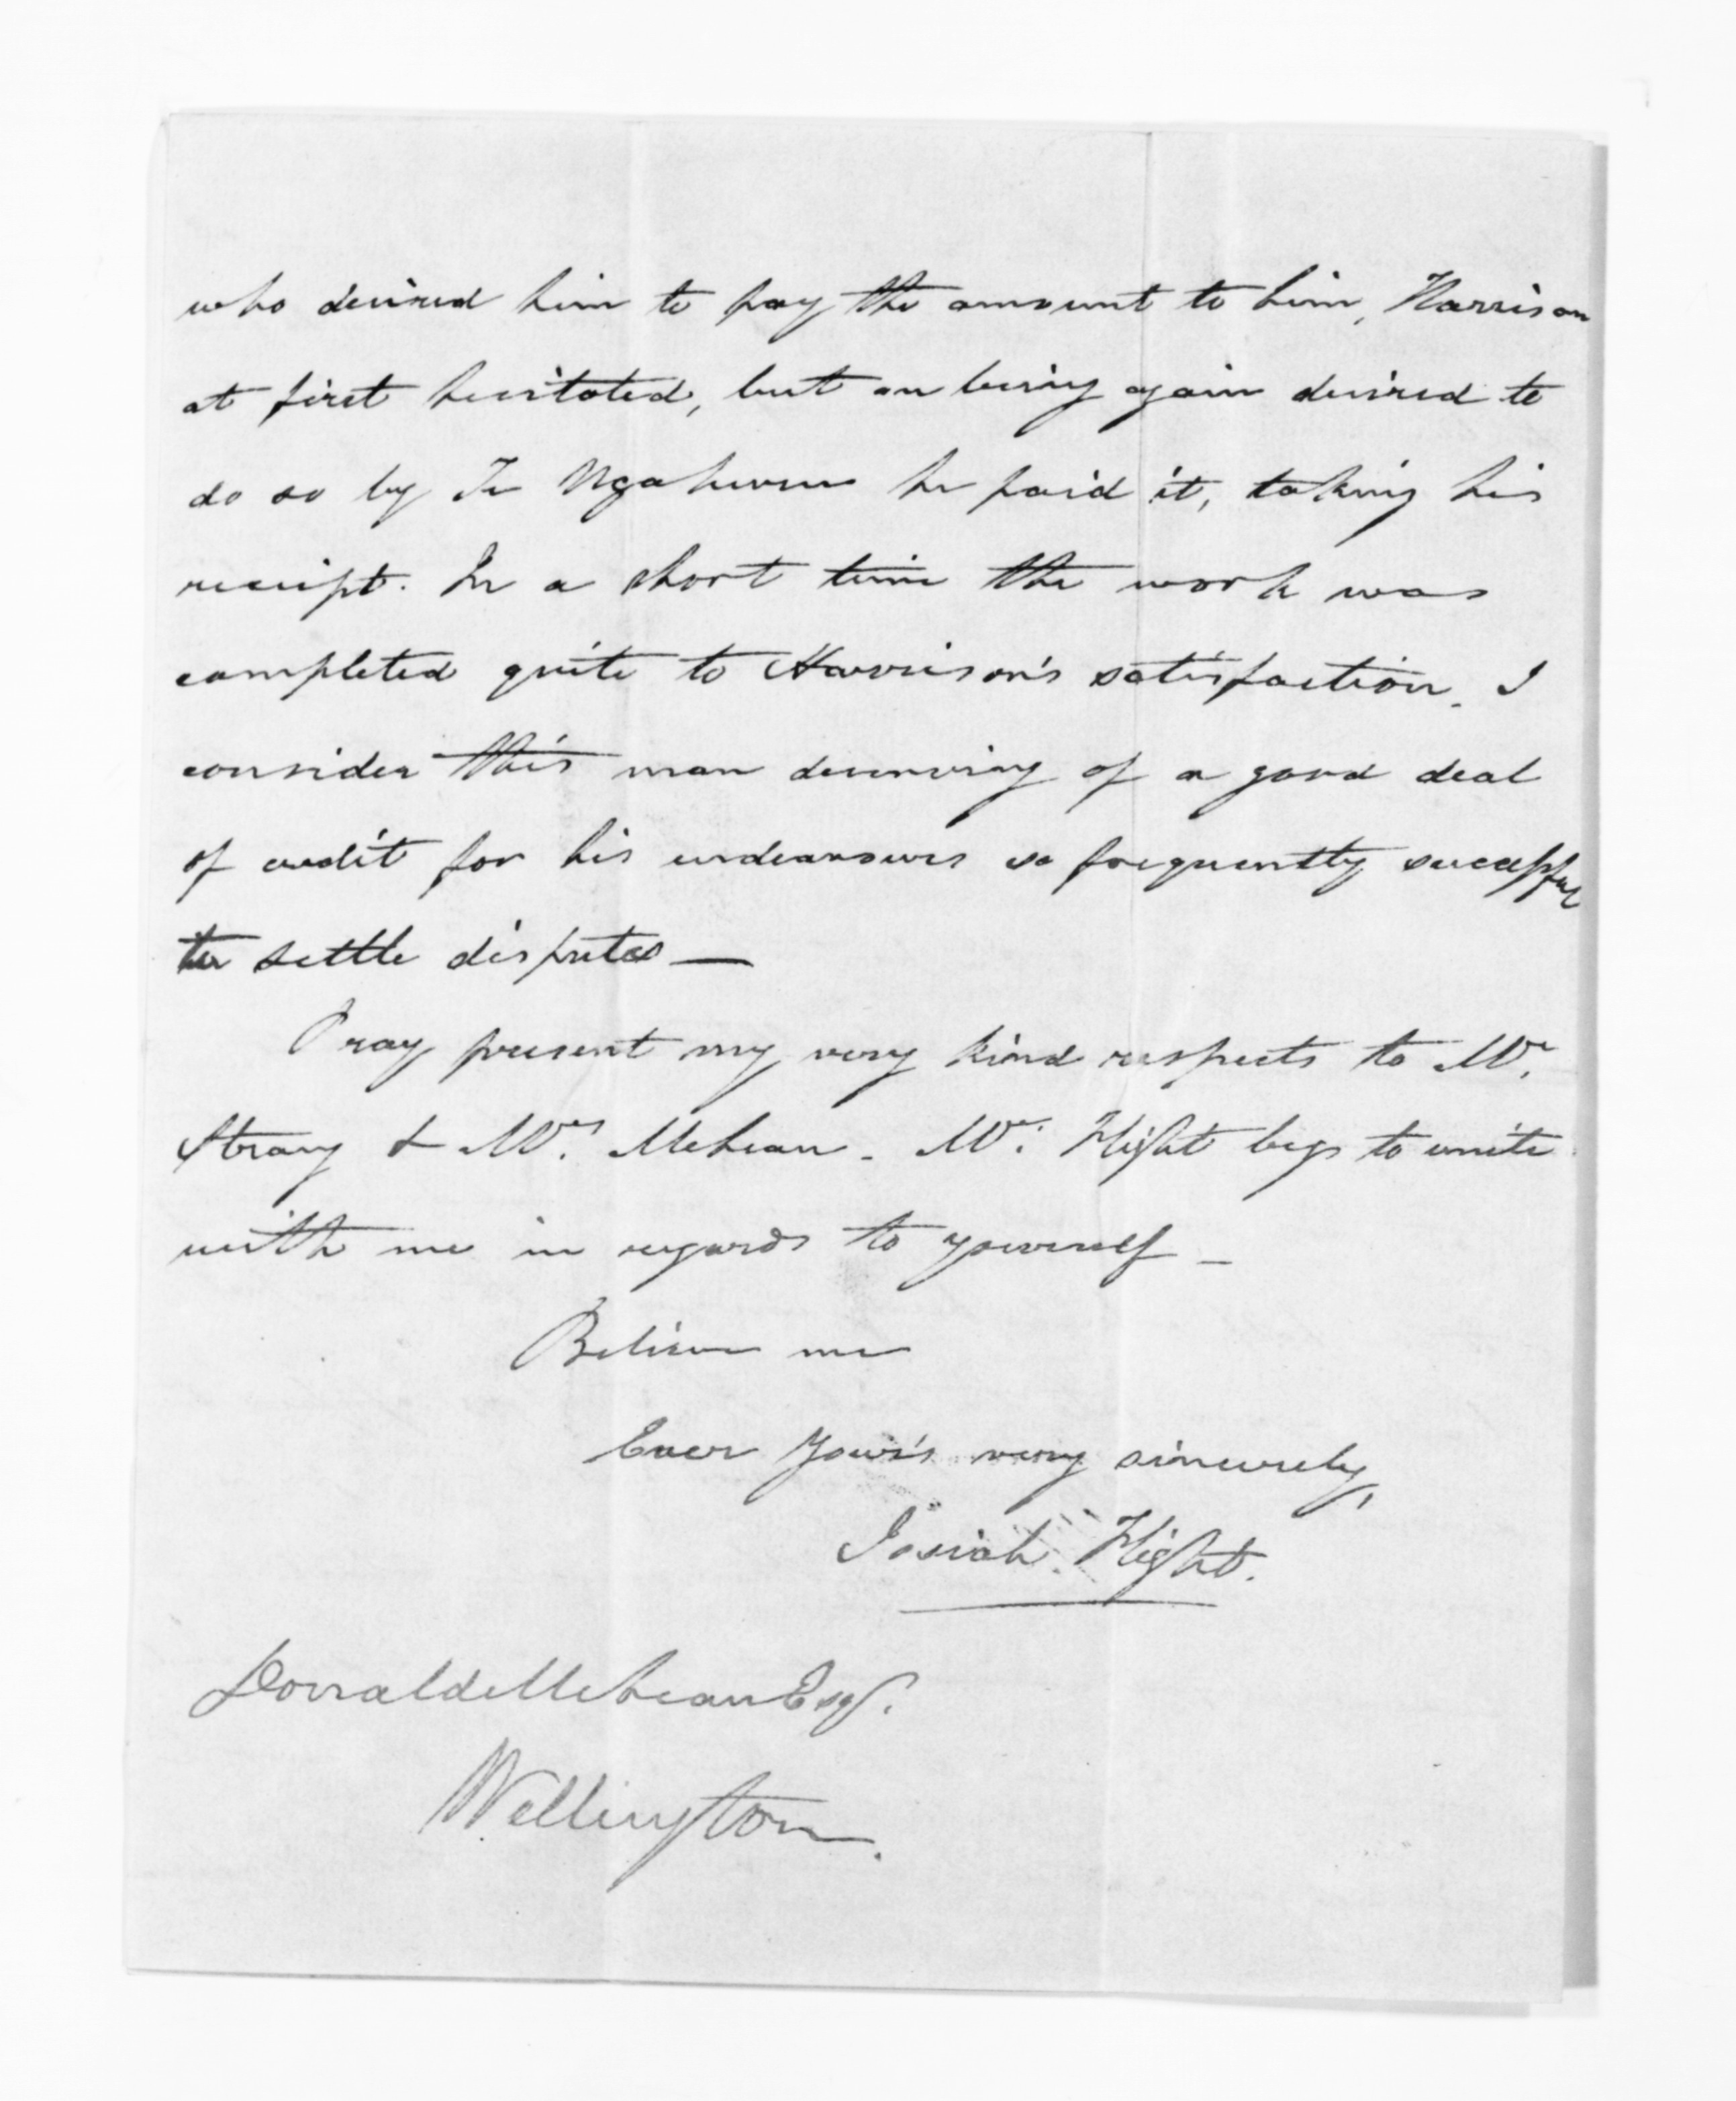 who desired him to pay the amount to him, Harrison
at first hesitated, but on being again desired to
do so by Te Ngahuru he paid it, taking his
receipt. In a short time the work was
completed quite to Harrison's satisfaction. I
consider this man deserving of a good deal
of credit for his endeavours so frequently successful
to settle disputes —
Pray present my very kind respects to Mr.
Strang & Mrs. McLean. Mr. Flight begs to unite
with me in regards to yourself —
Believe me
Ever Your's very sincerely,
Josiah Flight.
Donald McLean Esqr.
Wellington.